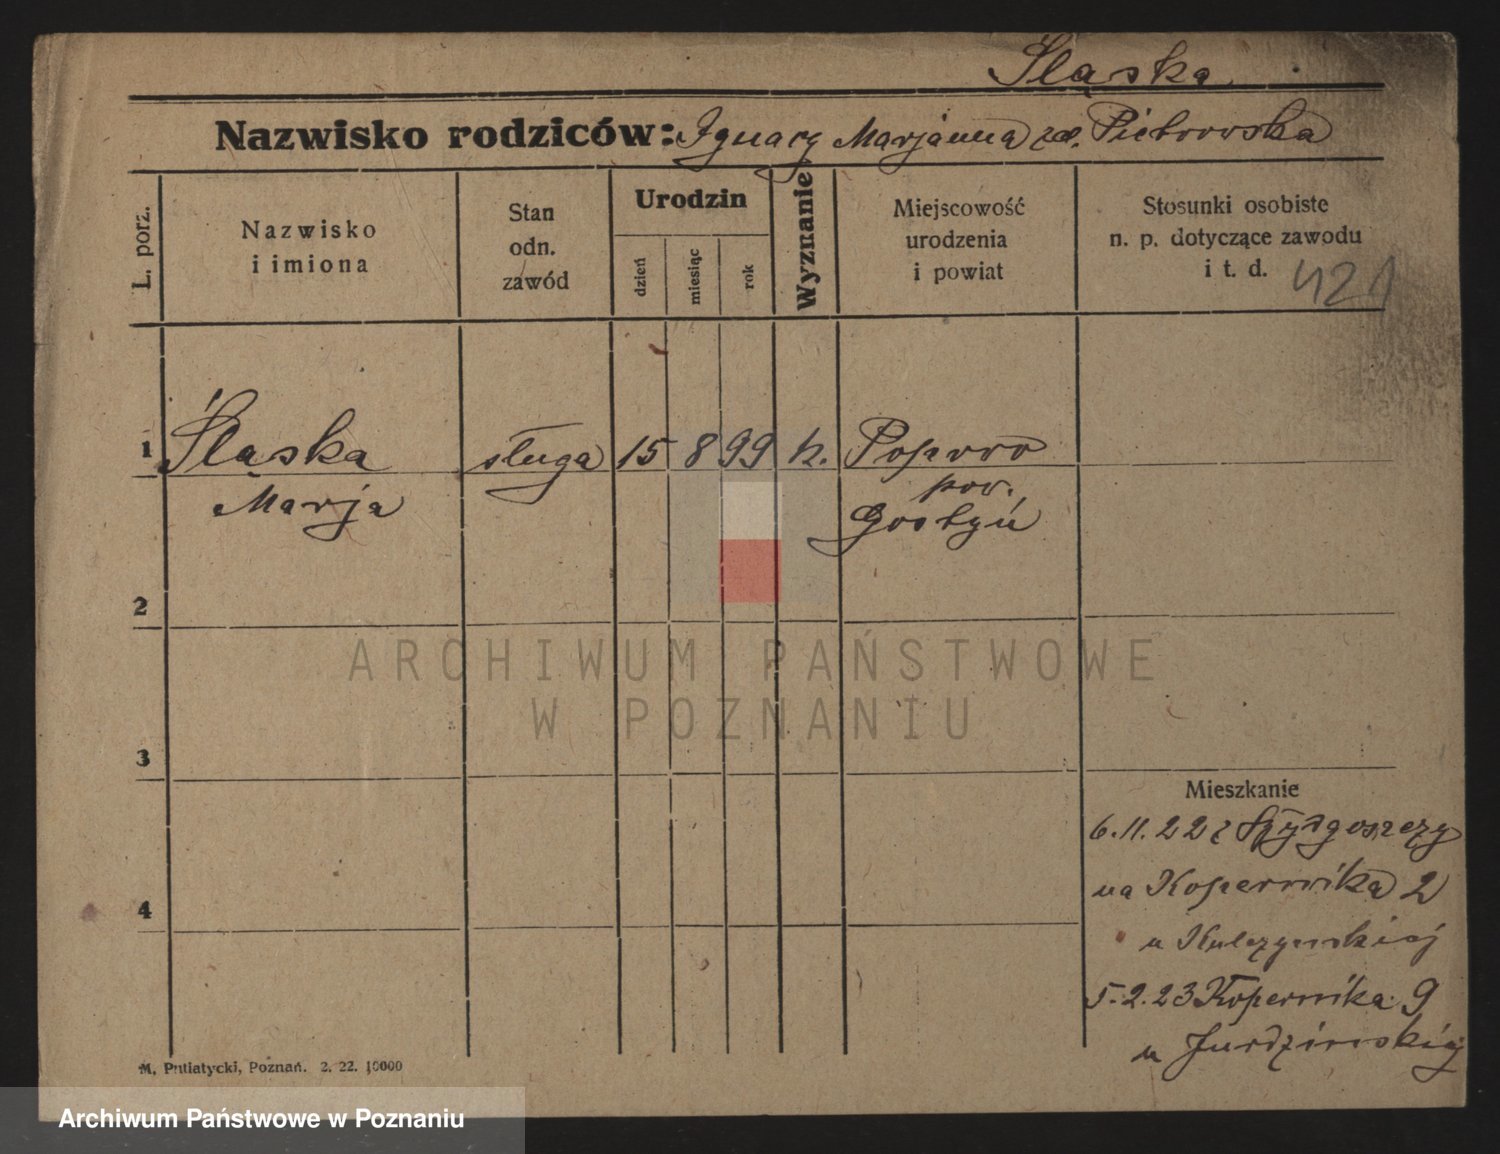 Śląska
Nazwisko rodziców: Ignacy Marjanna zd. Piotrowska
L. porz.
Nazwisko
i imiona
Stan
odn.
zawód
Urodzin
dzień
miesiąc
rok
Wyznanie
Miejscowość
urodzenia
i powiat
Stosunki osobiste
n. p. dotyczące zawodu
i t. d.
421
1 Śląska sługa 15 8 99 k.
Marja pow.
Gostyń
2
ARCHIWUM PAŃSTWOWE
W POZNANIU
3
4
Mieszkanie
6.11.22 z Bydgoszczy
na Kopernika 2
u Kulczyńskiej
5.2.23 Kopernika 9
u Jurdzińskiej
M. Putiatycki, Poznań. 2. 22. 10000
Archiwum Państwowe w Poznaniu